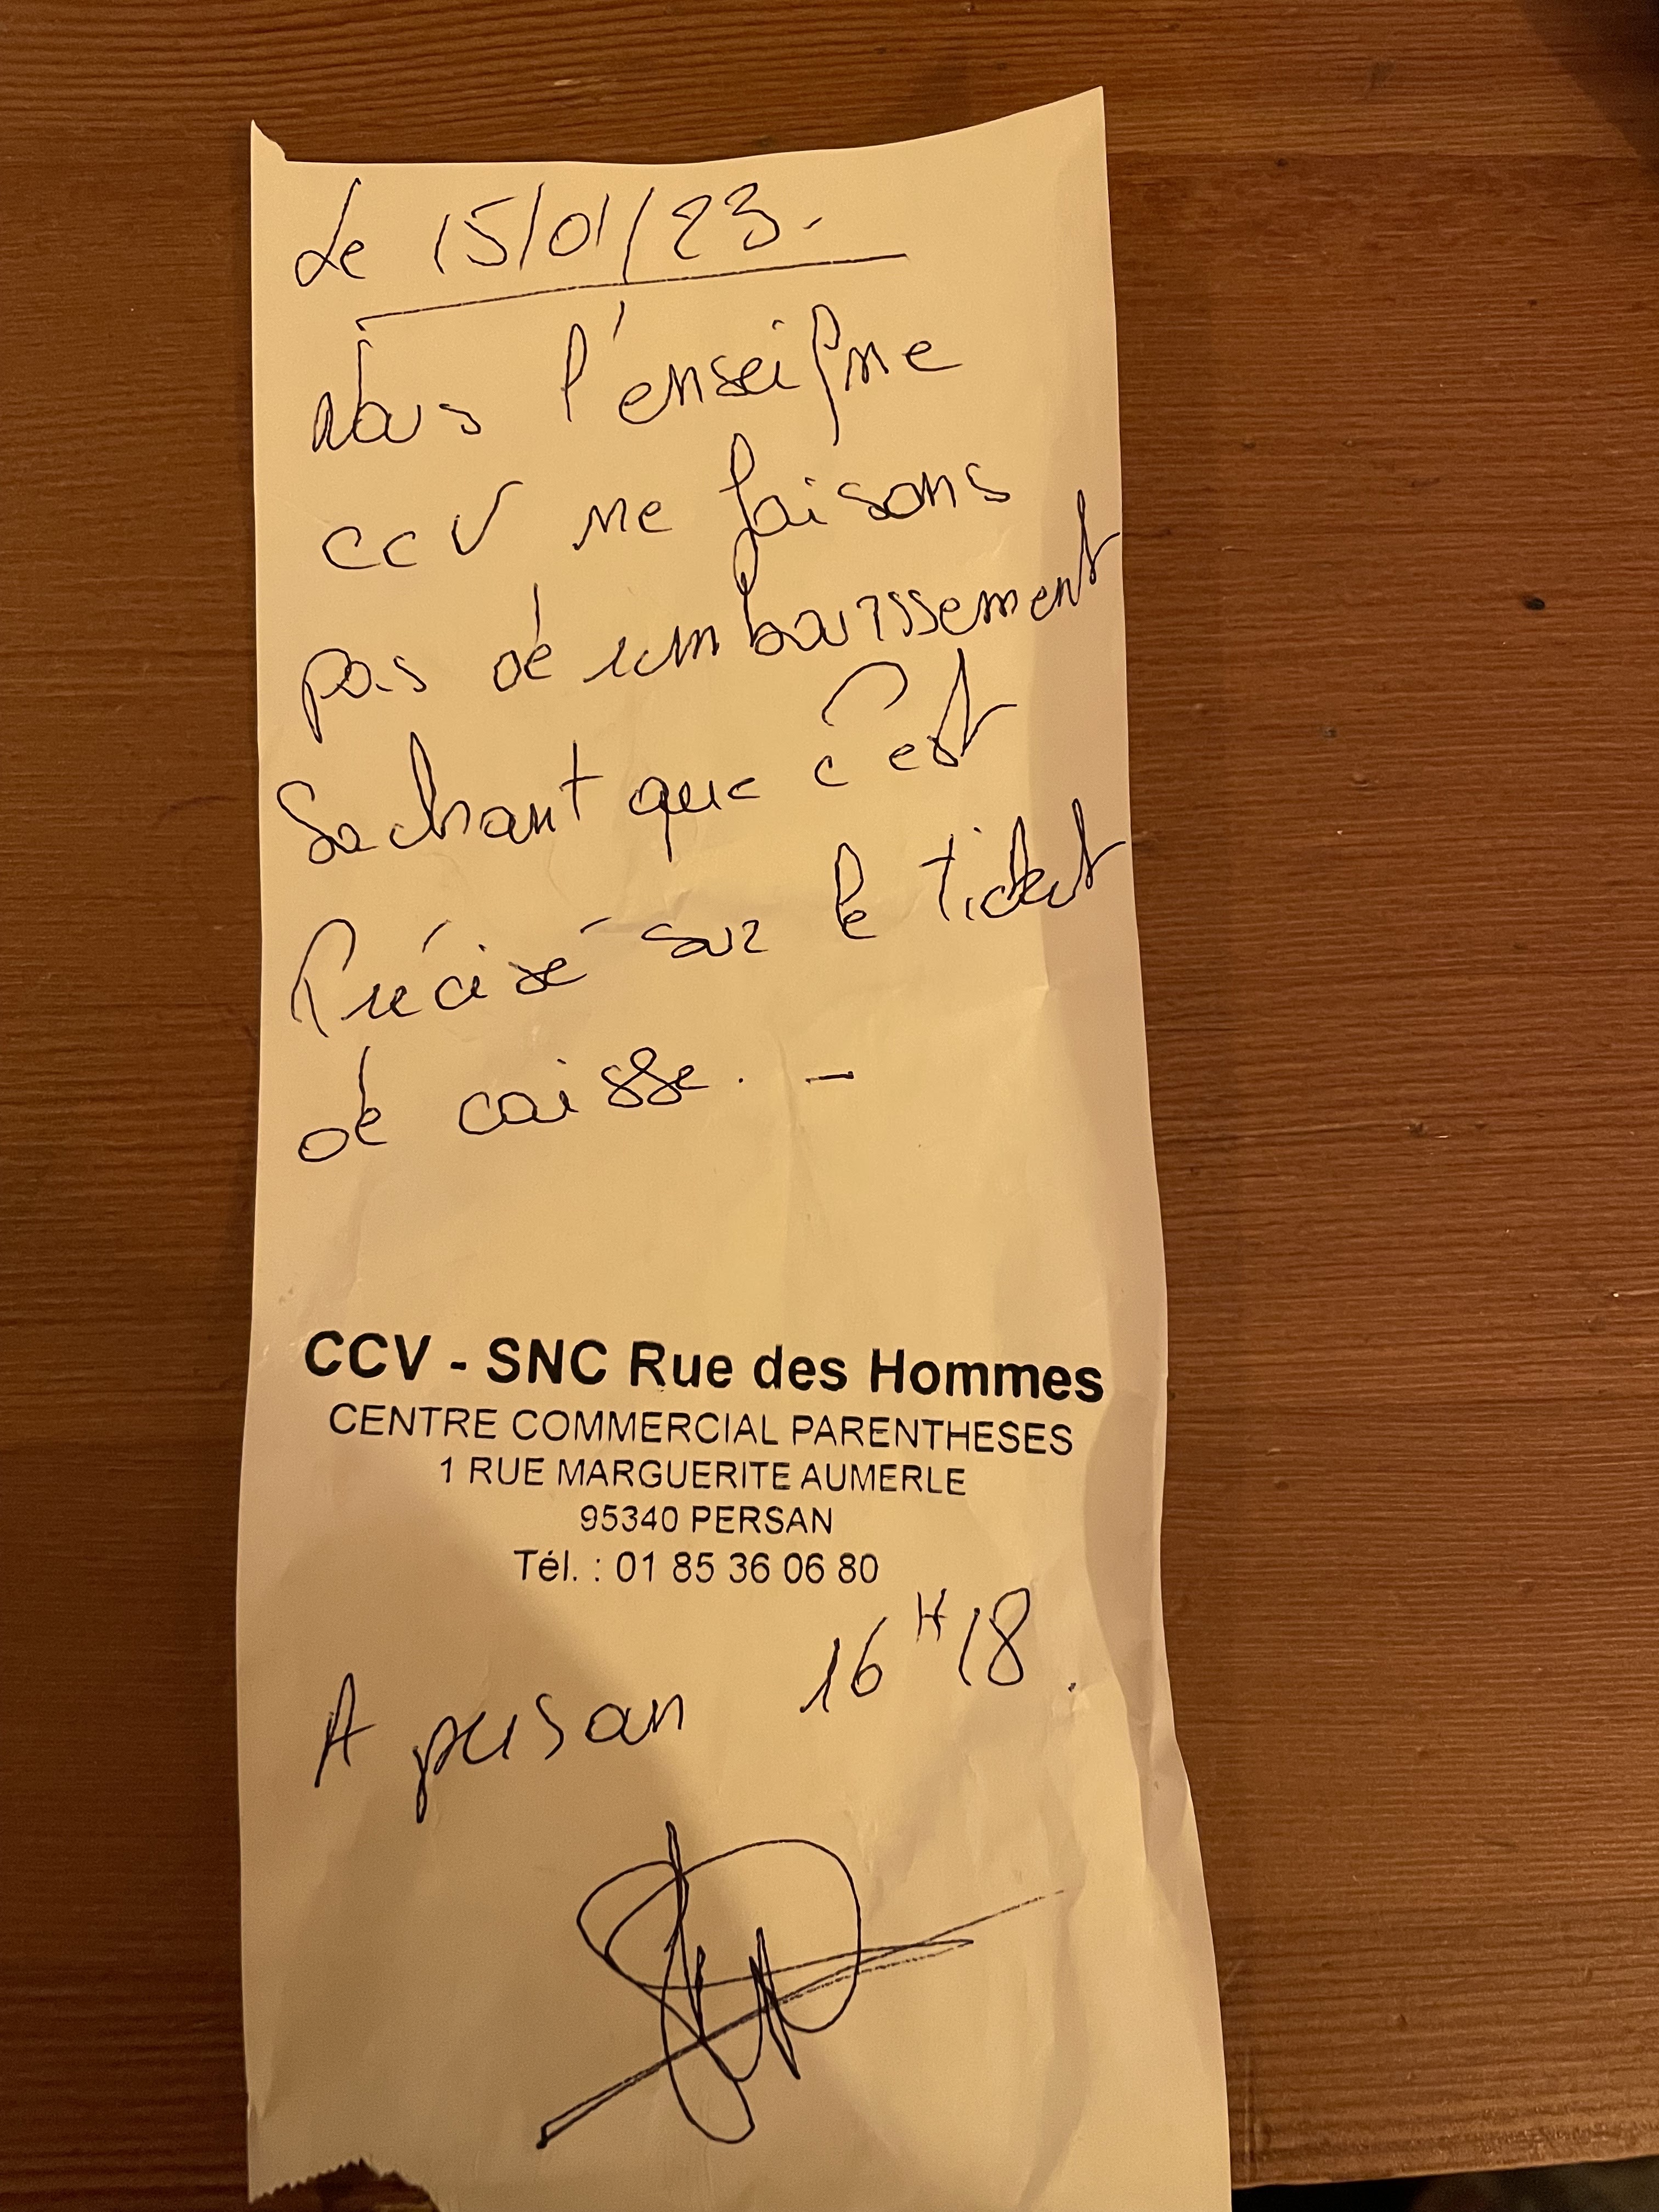 Le 15/01/23.
Nous l'enseigne
CCV ne faisons
pas de rembourssement
Sachant que c'est
Précisé sur le ticket
de caisse. -
CCV - SNC Rue des Hommes
CENTRE COMMERCIAL PARENTHESES
1 RUE MARGUERITE AUMERLE
95340 PERSAN
Tél. : 01 85 36 06 80
A persan 16H18.